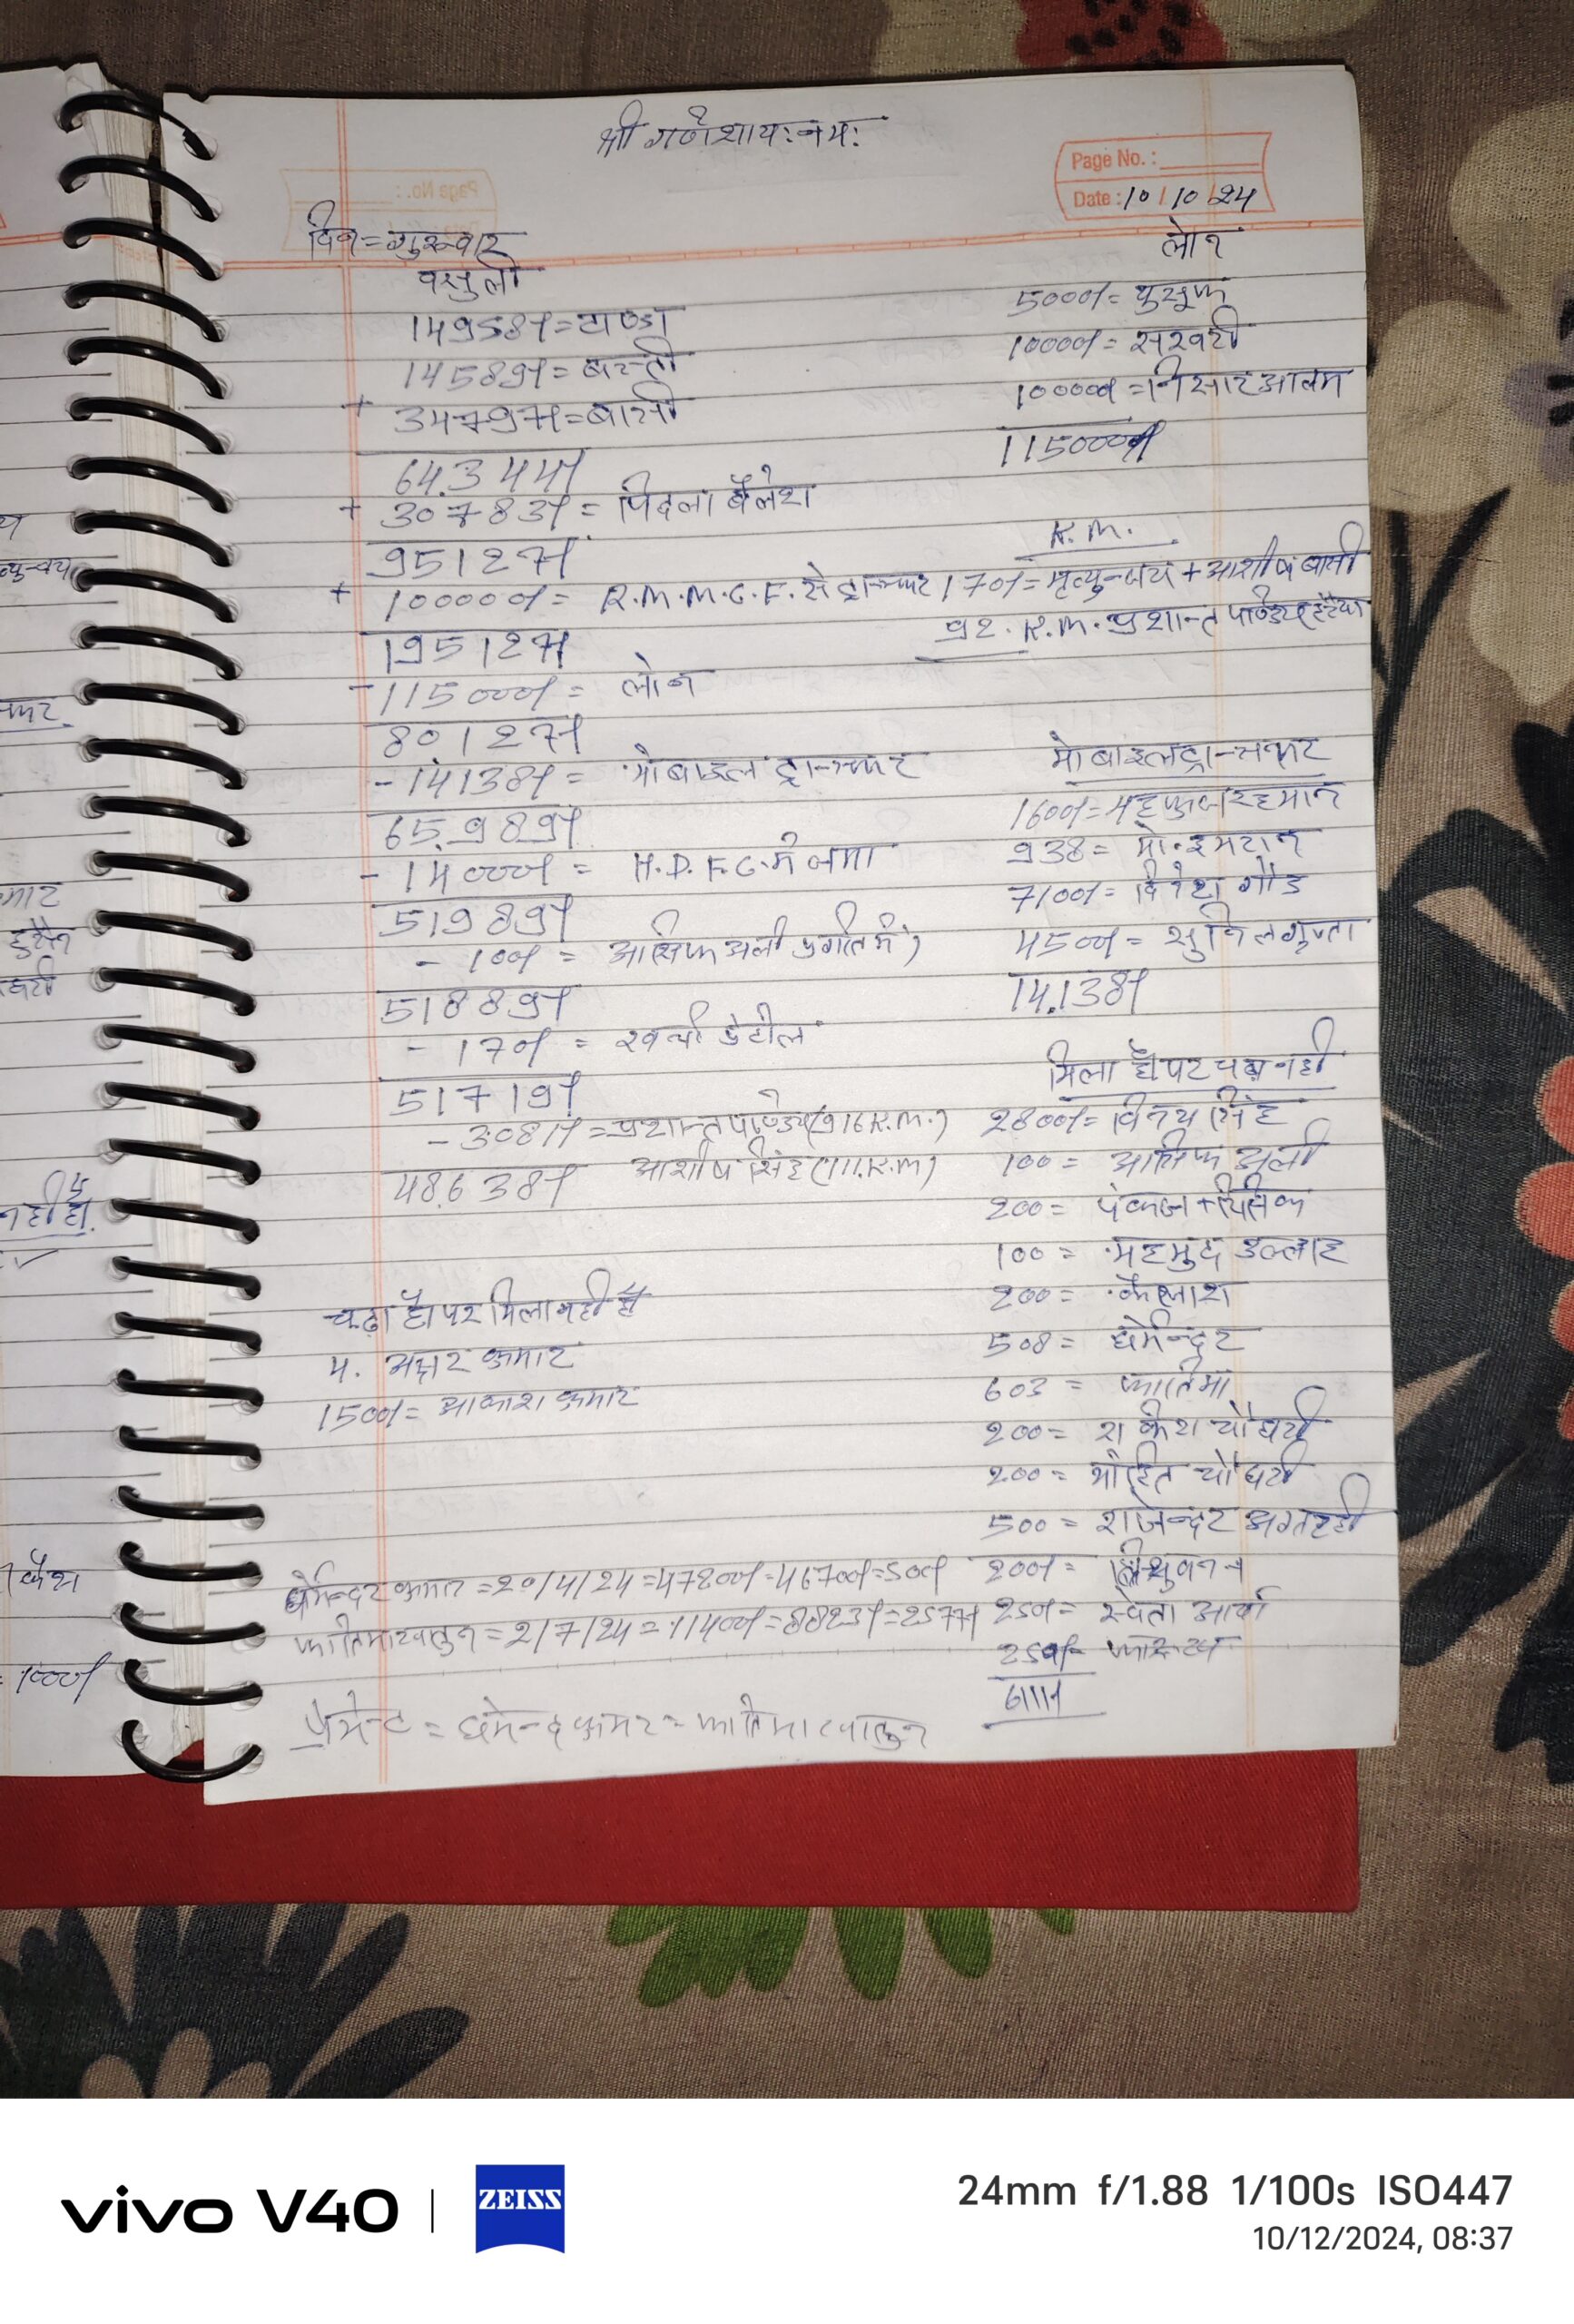 श्री गणेशाय: नम:
Page No. :
Date : 10/10/24
दिन = गुरुवार
वसुली
14958/- = टाण्डा
14589/- = बस्ती
+ 34797/- = बासी
64344/-
+ 30783/- = पिछला बैलेंश
95127/-
+ 100000/- = R.M.M.C.F. से ट्रान्सफर
195127/-
- 115000/- = लोन
80127/-
- 14138/- = मोबाइल ट्रान्सफर
65989/-
- 14000/- = H.D.F.C. में जमा
51989/-
- 100/- = आसिफ अली प्रगति में)
51889/-
- 170/- = खर्चा डेटील
51719/-
- 3081/- = प्रशान्त पाण्डेय (916 K.M.)
आशीष सिंह (111. K.M)
48638/-
चढ़ा है पर मिला नही है
4. अक्षर कुमार
1500/- = आकाश कुमार
लोन
5000/- = युसुफ
10000/- = सरवरी
100000/- = निसार आलम
115000/-
K.M.
170/- = मृत्युन्जय + आशीष बासी
92. K.M. प्रशान्त पाण्डेय हरैया
मोबाइल ट्रान्सफर
1600/- = महफुजरहमान
938 = मो. इमरान
7100/- = दिनेश गौड
4500/- = सुनिल गुप्ता
14138/-
मिला है पर चढ़ा नही
2800/- = विनय सिंह
100 = आसिफ अली
200 = पंकज +
100 = महमुद उल्लाह
200 = कैलाश
508 = धर्मेन्दर
603 = फातिमा
200 = राकेश चौधरी
200 = मोहित चौधरी
500 = राजेन्दर अग्रहरी
200/- = त्रिभुवन
250/- = स्वेता आर्या
250/-
6111/-
धर्मेन्दर कुमार = 20/4/24 = 47200/- - 46700/- = 500/-
फातिमा खातुन = 2/7/24 = 11400/- = 8823/- = 2577/-
प्रेमेन्ट = धर्मेन्द कुमार = फातिमा खातुन
vivo V40
ZEISS
24mm f/1.88 1/100s ISO447
10/12/2024, 08:37